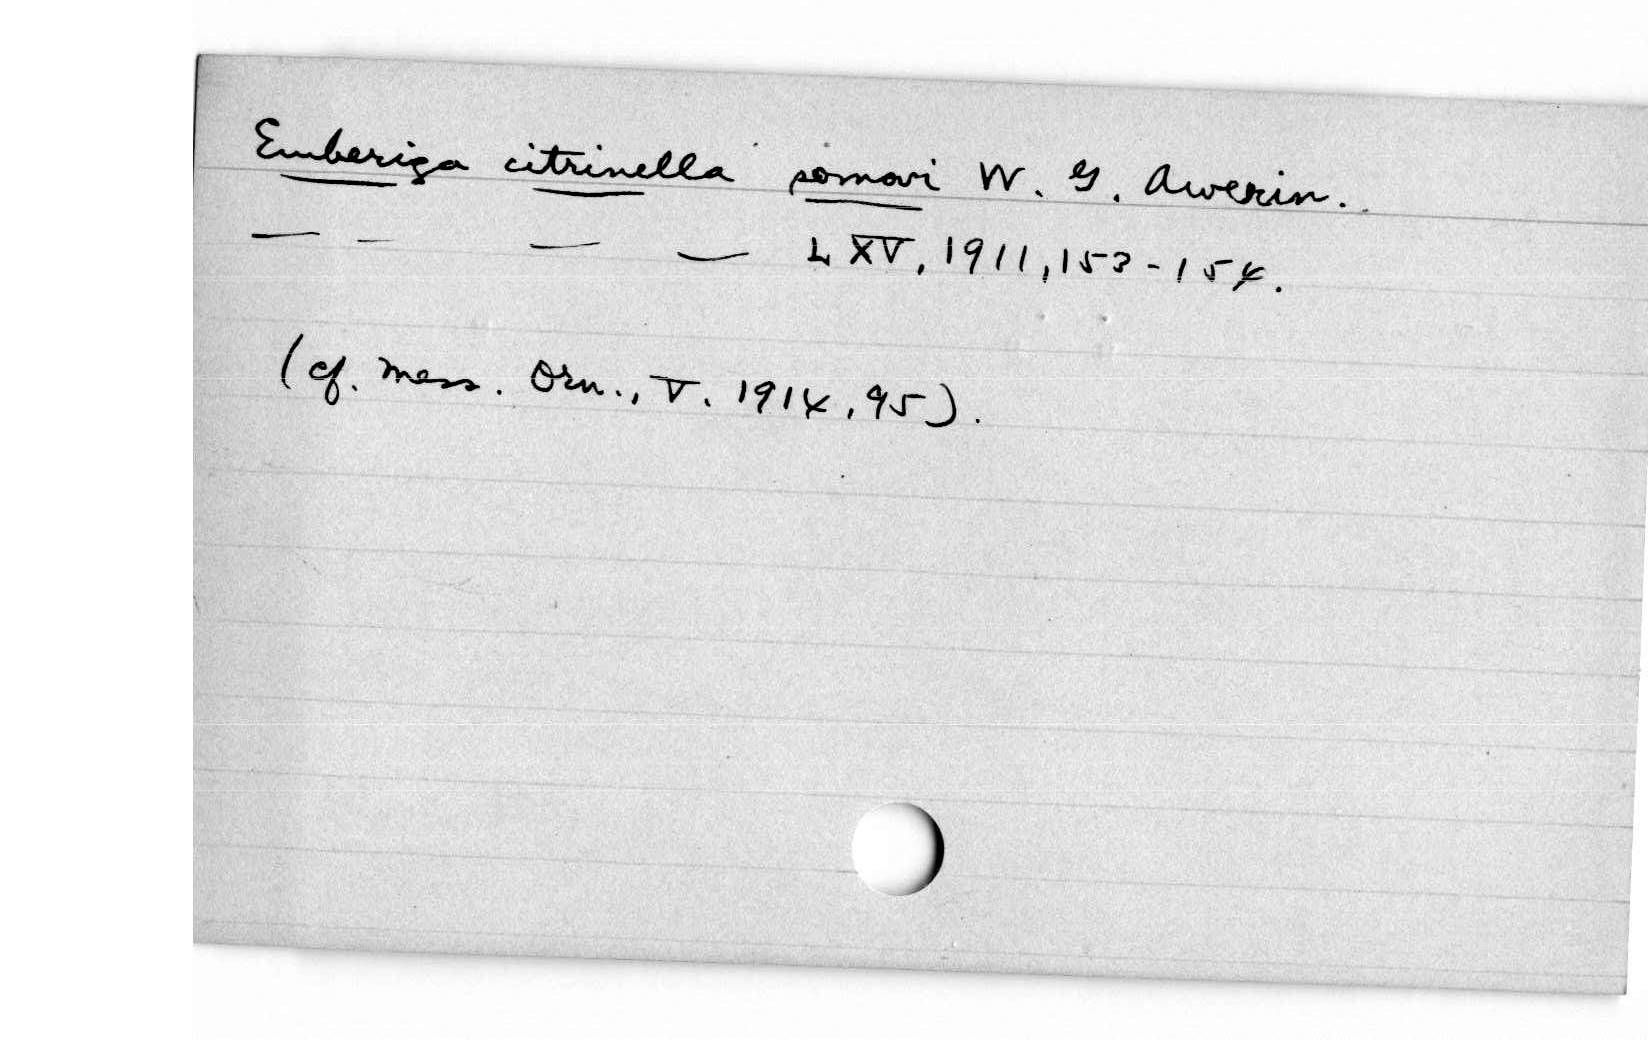 Emberiza citrinella somovi W. G. Awerin.
— — — — LXV, 1911, 153-154.
(cf. Mess. Orn., V. 1914, 95).